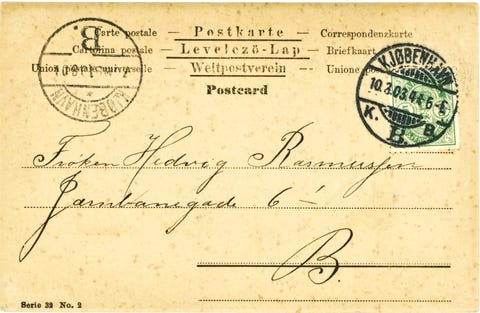 Carte postale — Postkarte — Correspondenzkarte
Cartolina postale — Levelező-Lap — Briefkaart
Union postale universelle Weltpostverein — Unione
Postcard
B.
KJØBENHAVN
KJØBENHAVN
10.3.03.
K. B.
B.
Frøken Hedvig Rasmussen
Jærnbanegade 6
B.
Serie 32 No. 2